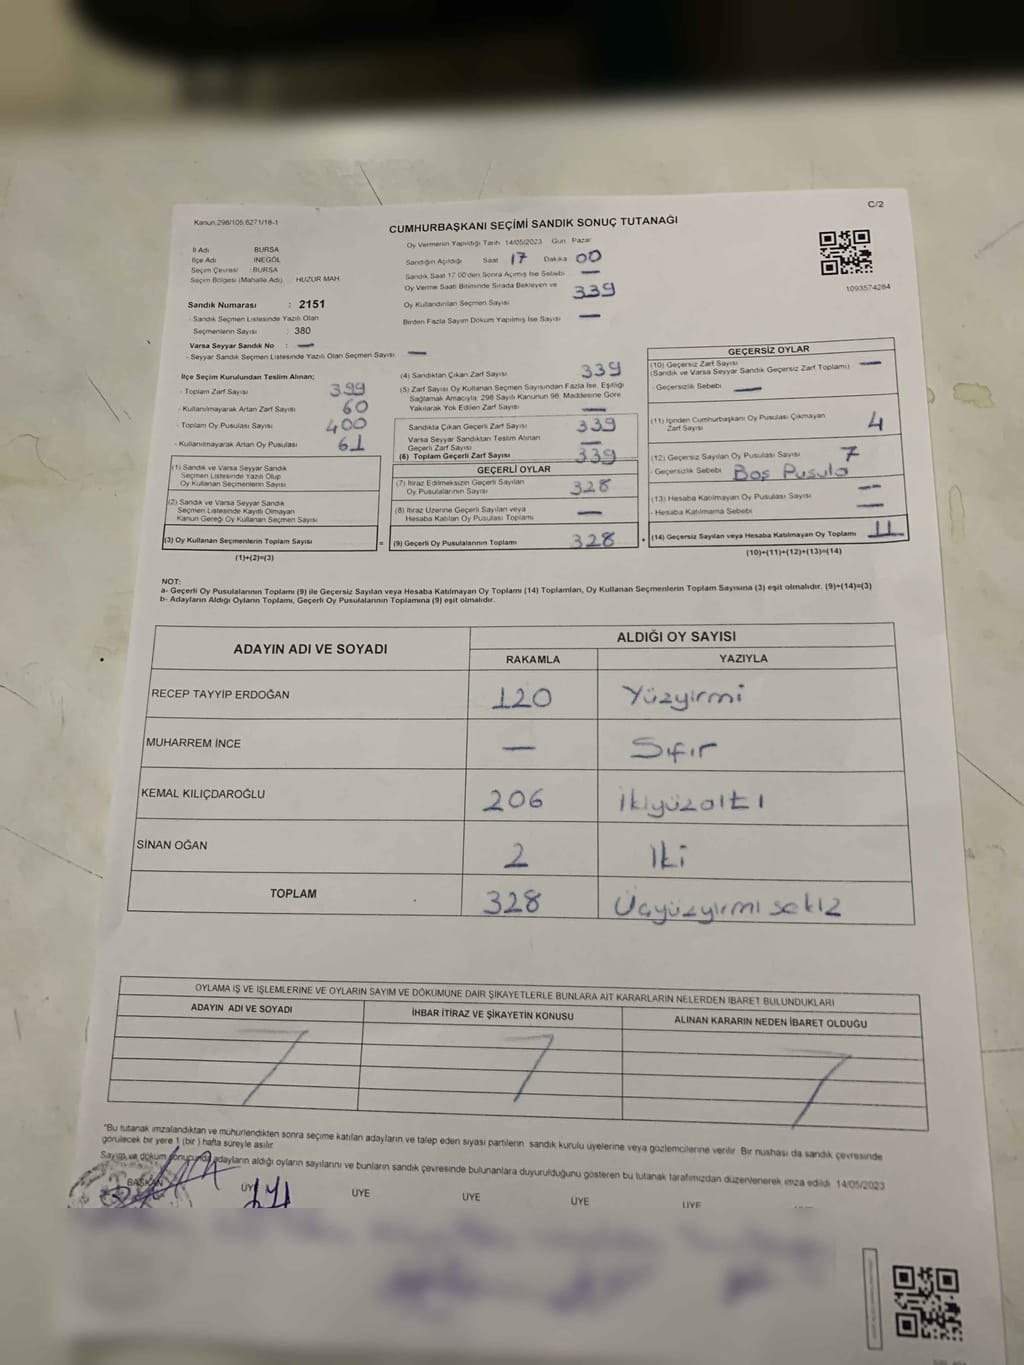 C/2
Kanun.298/105.6271/18-1
CUMHURBAŞKANI SEÇİMİ SANDIK SONUÇ TUTANAĞI
İl Adı BURSA
İlçe Adı İNEGÖL
Seçim Çevresi : BURSA
Seçim Bölgesi (Mahalle Adı) : HUZUR MAH
Sandık Numarası : 2151
- Sandık Seçmen Listesinde Yazılı Olan
Seçmenlerin Sayısı : 380
Varsa Seyyar Sandık No : —
- Seyyar Sandık Seçmen Listesinde Yazılı Olan Seçmen Sayısı —
Oy Vermenin Yapıldığı Tarih 14/05/2023 Gün Pazar
Sandığın Açıldığı Saat 17 Dakika 00
Sandık Saat 17.00'den Sonra Açılmış İse Sebebi —
Oy Verme Saati Bitiminde Sırada Bekleyen ve
Oy Kullandırılan Seçmen Sayısı 339
Birden Fazla Sayım Döküm Yapılmış İse Sayısı —
1093574264
İlçe Seçim Kurulundan Teslim Alınan;
- Toplam Zarf Sayısı 399
- Kullanılmayarak Artan Zarf Sayısı 60
- Toplam Oy Pusulası Sayısı 400
- Kullanılmayarak Artan Oy Pusulası 61
(1) Sandık ve Varsa Seyyar Sandık
Seçmen Listesinde Yazılı Olup
Oy Kullanan Seçmenlerin Sayısı
(2) Sandık ve Varsa Seyyar Sandık
Seçmen Listesinde Kayıtlı Olmayan
Kanun Gereği Oy Kullanan Seçmen Sayısı
(3) Oy Kullanan Seçmenlerin Toplam Sayısı =
(1)+(2)=(3)
(4) Sandıktan Çıkan Zarf Sayısı 339
(5) Zarf Sayısı Oy Kullanan Seçmen Sayısından Fazla İse, Eşitliği
Sağlamak Amacıyla, 298 Sayılı Kanunun 98. Maddesine Göre
Yakılarak Yok Edilen Zarf Sayısı —
Sandıkta Çıkan Geçerli Zarf Sayısı 339
Varsa Seyyar Sandıktan Teslim Alınan
Geçerli Zarf Sayısı —
(6) Toplam Geçerli Zarf Sayısı 339
GEÇERLİ OYLAR
(7) İtiraz Edilmeksizin Geçerli Sayılan
Oy Pusulalarının Sayısı 328
(8) İtiraz Üzerine Geçerli Sayılan veya
Hesaba Katılan Oy Pusulası Toplamı —
(9) Geçerli Oy Pusulalarının Toplamı 328 +
GEÇERSİZ OYLAR
(10) Geçersiz Zarf Sayısı
(Sandık ve Varsa Seyyar Sandık Geçersiz Zarf Toplamı) —
- Geçersizlik Sebebi —
(11) İçinden Cumhurbaşkanı Oy Pusulası Çıkmayan
Zarf Sayısı 4
(12) Geçersiz Sayılan Oy Pusulası Sayısı 7
- Geçersizlik Sebebi Boş Pusula
(13) Hesaba Katılmayan Oy Pusulası Sayısı —
- Hesaba Katılmama Sebebi —
(14) Geçersiz Sayılan veya Hesaba Katılmayan Oy Toplamı 11
(10)+(11)+(12)+(13)=(14)
NOT:
a- Geçerli Oy Pusulalarının Toplamı (9) ile Geçersiz Sayılan veya Hesaba Katılmayan Oy Toplamı (14) Toplamları, Oy Kullanan Seçmenlerin Toplam Sayısına (3) eşit olmalıdır. (9)+(14)=(3)
b- Adayların Aldığı Oyların Toplamı, Geçerli Oy Pusulalarının Toplamına (9) eşit olmalıdır.
ADAYIN ADI VE SOYADI ALDIĞI OY SAYISI
RAKAMLA YAZIYLA
RECEP TAYYİP ERDOĞAN 120 Yüzyirmi
MUHARREM İNCE — Sıfır
KEMAL KILIÇDAROĞLU 206 İkiyüzaltı
SİNAN OĞAN 2 İki
TOPLAM 328 Üçyüzyirmi sekiz
OYLAMA İŞ VE İŞLEMLERİNE VE OYLARIN SAYIM VE DÖKÜMÜNE DAİR ŞİKAYETLERLE BUNLARA AİT KARARLARIN NELERDEN İBARET BULUNDUKLARI
ADAYIN ADI VE SOYADI İHBAR İTİRAZ VE ŞİKAYETİN KONUSU ALINAN KARARIN NEDEN İBARET OLDUĞU
"Bu tutanak imzalandıktan ve mühürlendikten sonra seçime katılan adayların ve talep eden siyasi partilerin sandık kurulu üyelerine veya gözlemcilerine verilir. Bir nushası da sandık çevresinde
görülecek bir yere 1 (bir ) hafta süreyle asılır.
Sayım ve döküm sonucunda adayların aldığı oyların sayılarını ve bunların sandık çevresinde bulunanlara duyurulduğunu gösteren bu tutanak tarafımızdan düzenlenerek imza edildi. 14/05/2023
BAŞKAN ÜYE ÜYE ÜYE ÜYE ÜYE